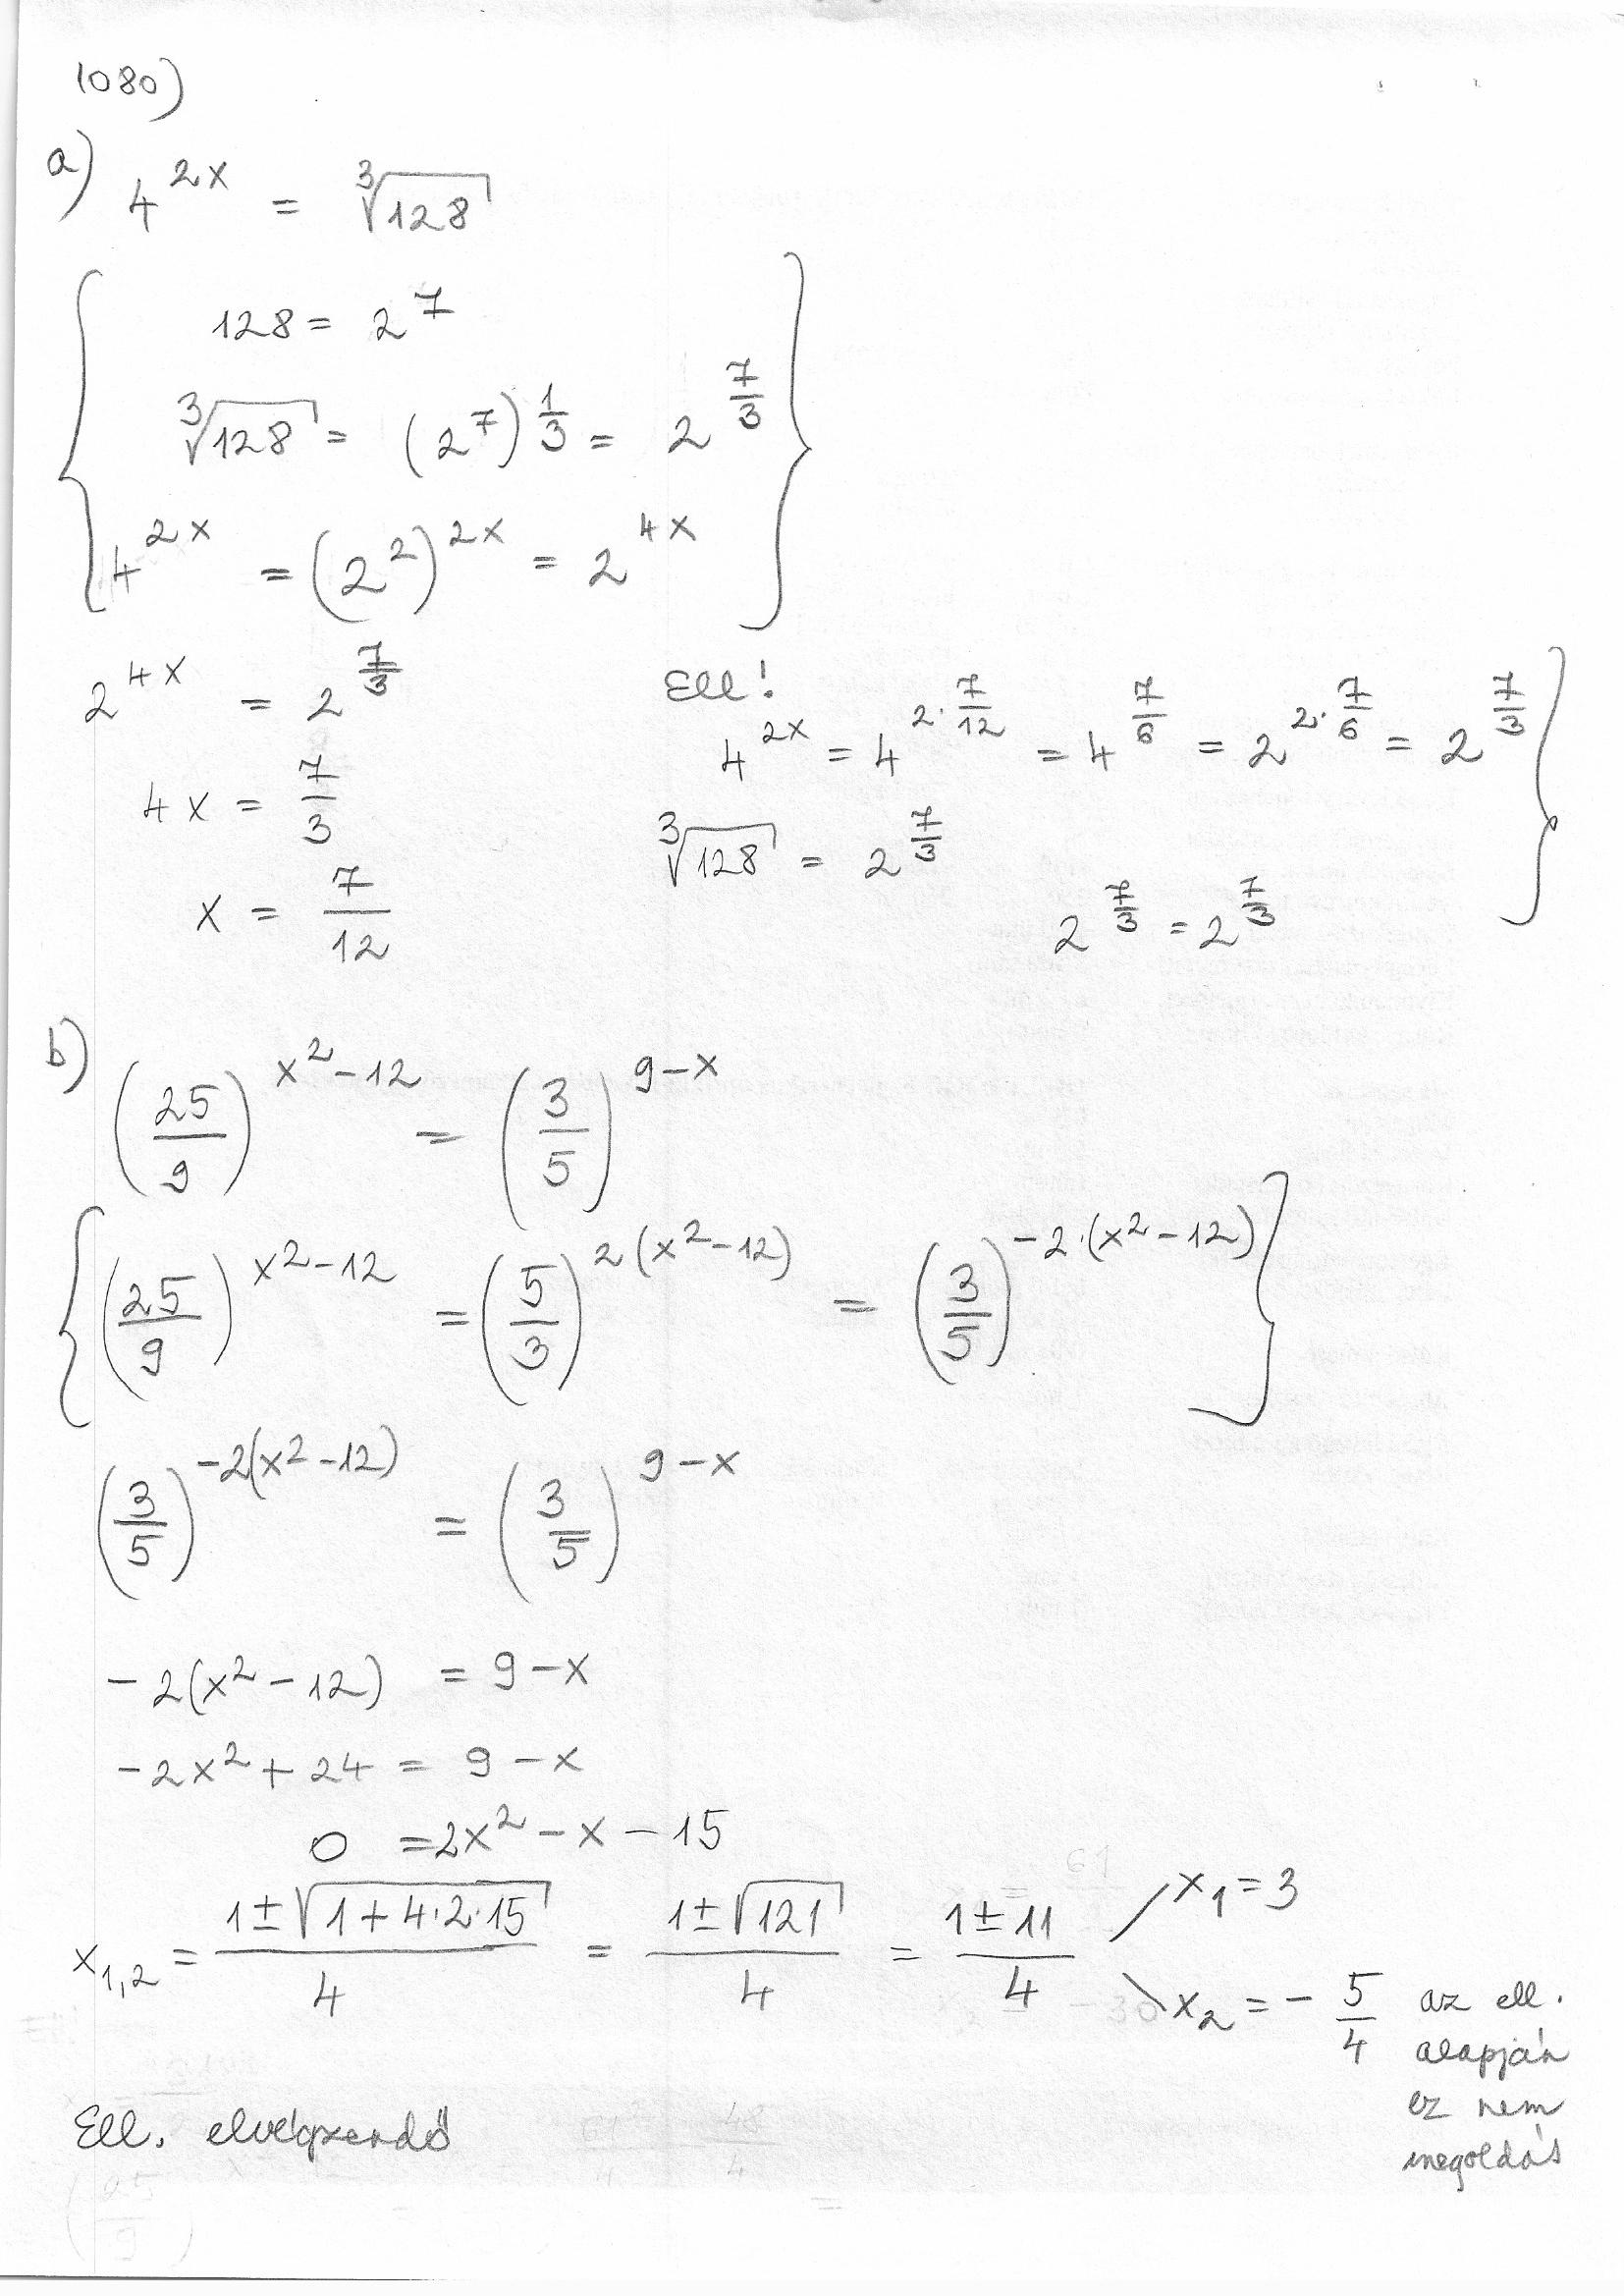 1080)
a) 4^{2x} = ∛128
128 = 2^7
∛128 = (2^7)^{1/3} = 2^{7/3}
4^{2x} = (2^2)^{2x} = 2^{4x}
2^{4x} = 2^{7/3}
4x = 7/3
x = 7/12
Ell!
4^{2x} = 4^{2·7/12} = 4^{7/6} = 2^{2·7/6} = 2^{7/3}
∛128 = 2^{7/3}
2^{7/3} = 2^{7/3}
b) (25/9)^{x^2-12} = (3/5)^{9-x}
(25/9)^{x^2-12} = (5/3)^{2(x^2-12)} = (3/5)^{-2·(x^2-12)}
(3/5)^{-2(x^2-12)} = (3/5)^{9-x}
-2(x^2-12) = 9-x
-2x^2+24 = 9-x
0 = 2x^2-x-15
x_{1,2} = (1±√(1+4·2·15))/4 = (1±√121)/4 = (1±11)/4
x_1 = 3
x_2 = -5/4 az ell.
alapján
ez nem
megoldás
Ell. elvégzendő